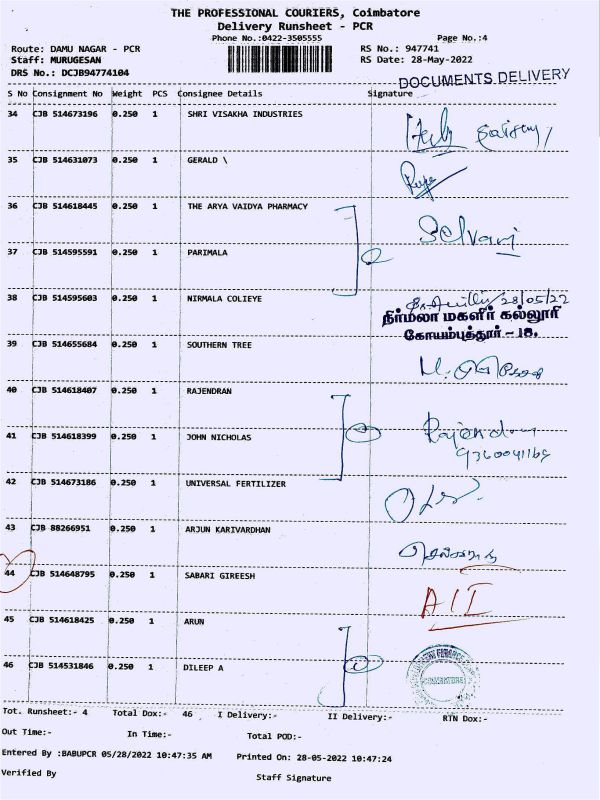 THE PROFESSIONAL COURIERS, Coimbatore
Delivery Runsheet - PCR
Phone No.:0422-3505555 Page No.:4
Route: DAMU NAGAR - PCR RS No.: 947741
Staff: MURUGESAN RS Date: 28-May-2022
DRS No.: DCJB94774104
DOCUMENTS DELIVERY
S No Consignment No Weight PCS Consignee Details Signature
34 CJB 514673196 0.250 1 SHRI VISAKHA INDUSTRIES
35 CJB 514631073 0.250 1 GERALD \
36 CJB 514618445 0.250 1 THE ARYA VAIDYA PHARMACY
Selvam
37 CJB 514595591 0.250 1 PARIMALA
38 CJB 514595603 0.250 1 NIRMALA COLIEYE 28/05/22
நிர்மலா மகளிர் கல்லூரி
கோயம்புத்தூர் - 18.
39 CJB 514655684 0.250 1 SOUTHERN TREE
40 CJB 514618407 0.250 1 RAJENDRAN
41 CJB 514618399 0.250 1 JOHN NICHOLAS
42 CJB 514673186 0.250 1 UNIVERSAL FERTILIZER
43 CJB 88266951 0.250 1 ARJUN KARIVARDHAN
44 CJB 514648795 0.250 1 SABARI GIREESH
45 CJB 514618425 0.250 1 ARUN
46 CJB 514531846 0.250 1 DILEEP A
COIMBATORE
Tot. Runsheet:- 4 Total Dox:- 46 I Delivery:- II Delivery:- RTN Dox:-
Out Time:- In Time:- Total POD:-
Entered By :BABUPCR 05/28/2022 10:47:35 AM Printed On: 28-05-2022 10:47:24
Verified By Staff Signature